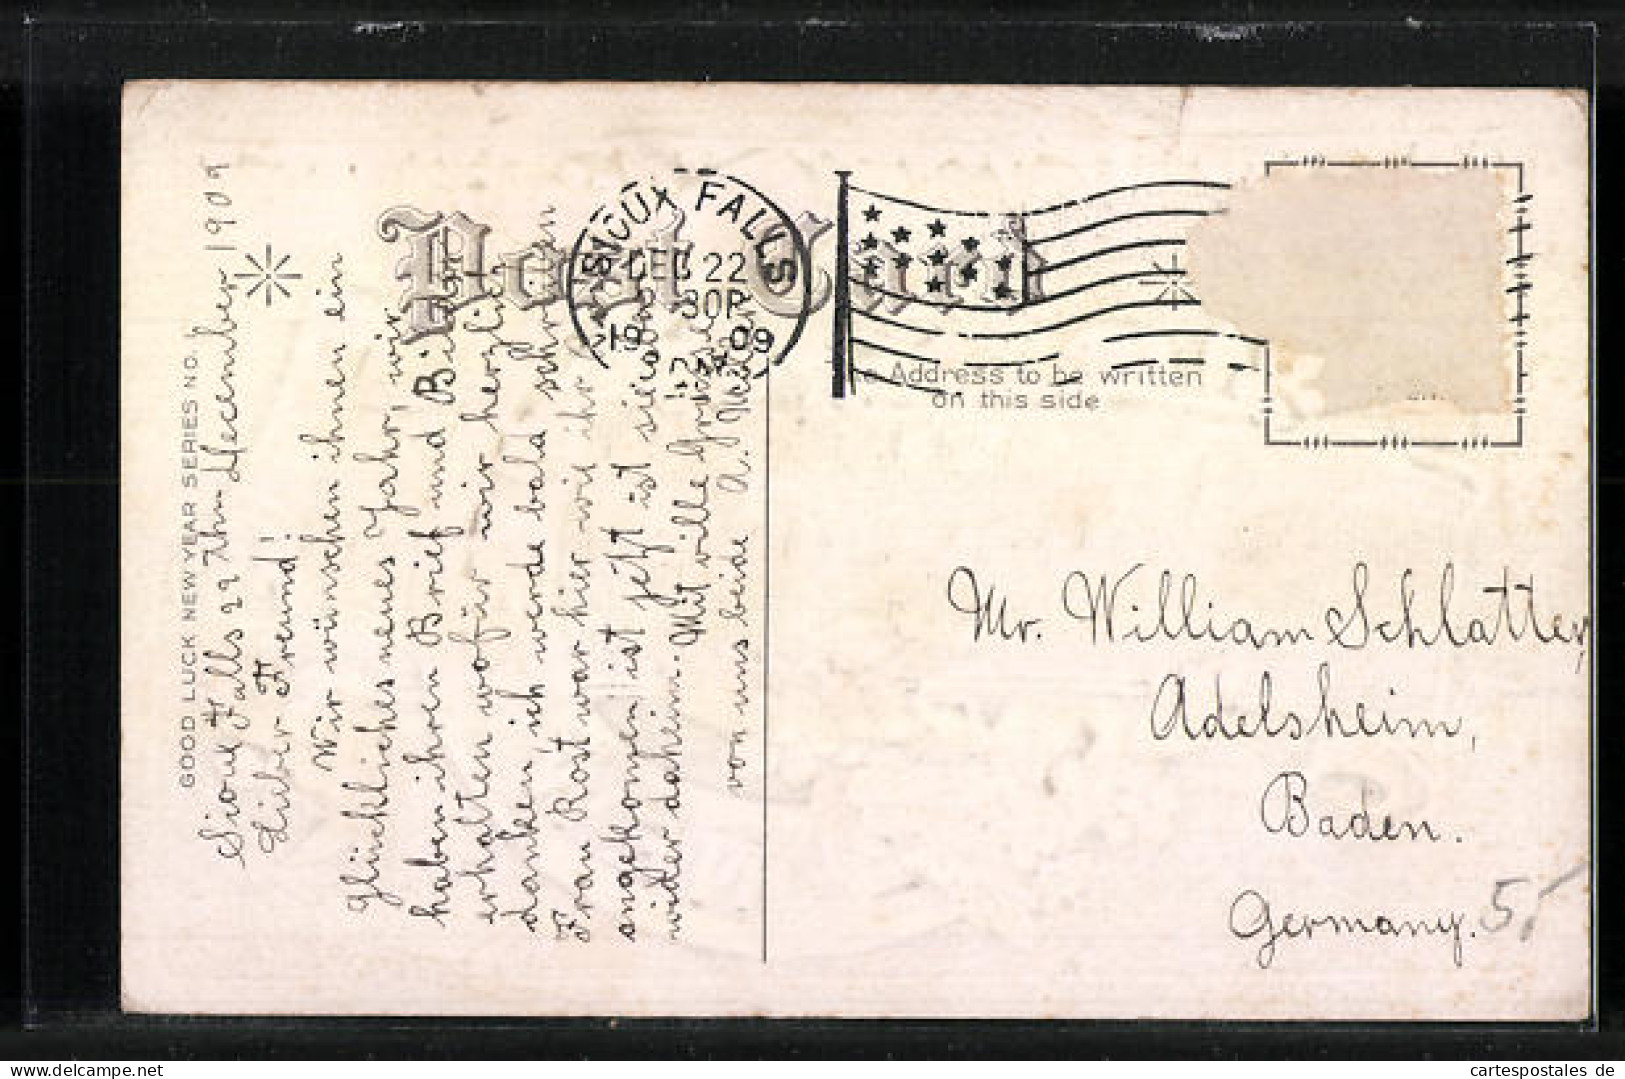 GOOD LUCK NEW YEAR SERIES NO. 1
Sioux Falls 22 thn December 1909
Lieber Freund!
Wir wünschen ihnen ein
glückliches neues Jahr, wir
haben ihren Brief und Bild
erhalten wofür wir herzlich
danken, ich werde bald schreiben
Frau Rost war hier wie ihr
angekommen ist jetzt ist sie
wider daheim. Mit ville Grüße
von uns beide A.
Post Card
SIOUX FALLS
DEC 22
30P
1909
The Address to be written
on this side
Mr. William Schlatter,
Adelsheim,
Baden.
Germany.
5,
cartespostales de